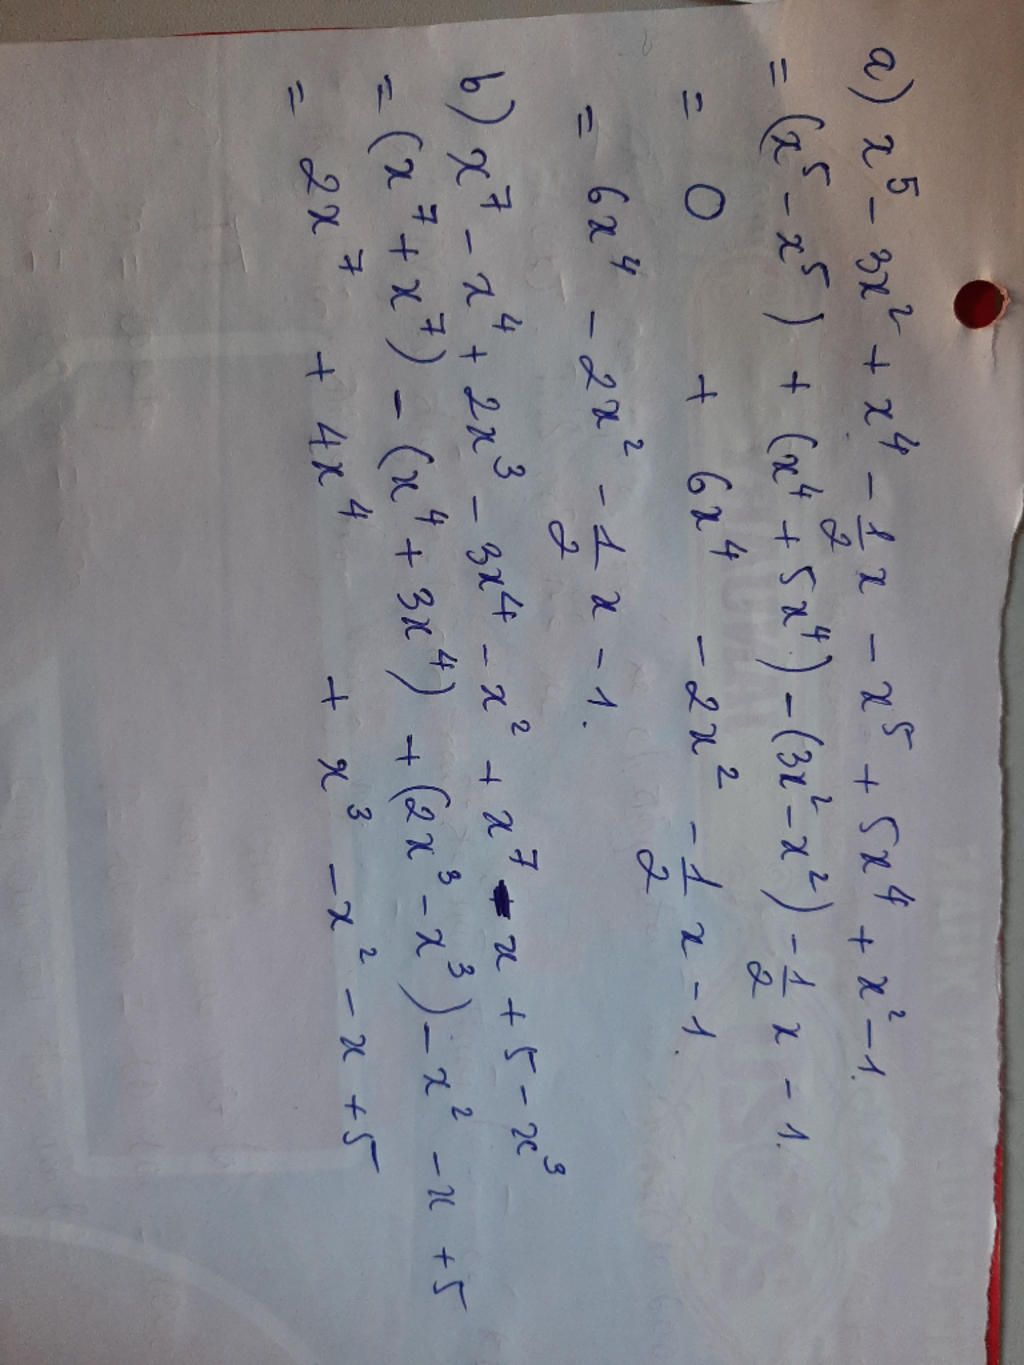 a) x⁵ - 3x² + x⁴ - 1/2 x - x⁵ + 5x⁴ + x² - 1.
= (x⁵ - x⁵) + (x⁴ + 5x⁴) - (3x² - x²) - 1/2 x - 1.
= 0 + 6x⁴ - 2x² - 1/2 x - 1.
= 6x⁴ - 2x² - 1/2 x - 1.
b) x⁷ - x⁴ + 2x³ - 3x⁴ - x² + x⁷ - x + 5 - x³
= (x⁷ + x⁷) - (x⁴ + 3x⁴) + (2x³ - x³) - x² - x + 5
= 2x⁷ + 4x⁴ + x³ - x² - x + 5